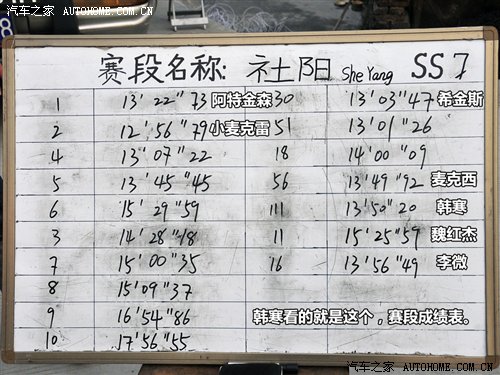 汽车之家 AUTOHOME.COM.CN
8
赛段名称: 社阳 She Yang SS7
1 13'22"73 阿特金森 30 13'03"47 希金斯
2 12'56"79 小麦克雷 51 13'01"26
4 13'07"22 18 14'00"09
5 13'45"45 56 13'49"92 麦克西
6 15'29"59 111 13'50"20 韩寒
3 14'28"18 11 15'25"59 魏红杰
7 15'00"35 16 13'56"49 李微
8 15'09"37
9 16'54"86 韩寒看的就是这个。赛段成绩表。
10 17'56"55
汽车之家 AUTOHOME.COM.CN